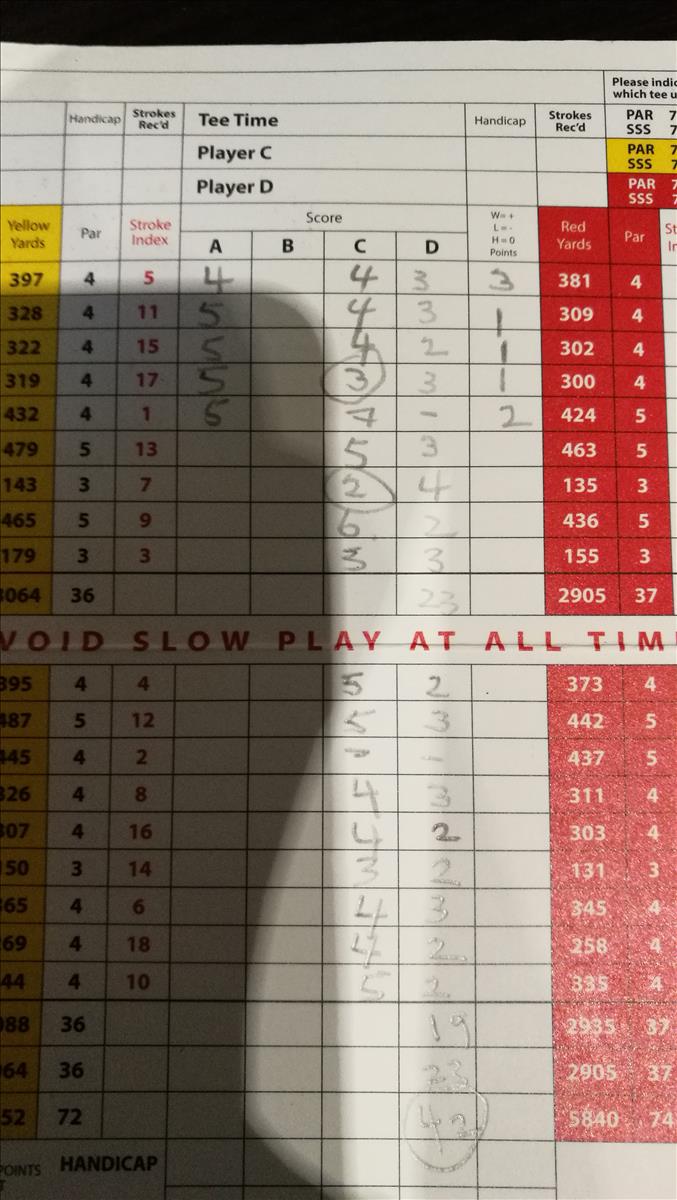 Please indic
which tee u
Handicap Strokes Rec'd Tee Time Handicap Strokes Rec'd PAR 7
SSS 7
Player C PAR 7
SSS 7
Player D PAR 7
SSS 7
Yellow Yards Par Stroke Index Score W= + L= - H=0 Points Red Yards Par St
A B C D
397 4 5 4 4 3 3 381 4
328 4 11 5 4 3 1 309 4
322 4 15 5 4 2 1 302 4
319 4 17 5 3 3 1 300 4
432 4 1 6 - 2 424 5
479 5 13 5 3 463 5
143 3 7 2 4 135 3
465 5 9 6 2 436 5
179 3 3 3 3 155 3
3064 36 23 2905 37
VOID SLOW PLAY AT ALL TIM
395 4 4 5 2 373 4
487 5 12 5 3 442 5
445 4 2 437 5
326 4 8 4 3 311 4
307 4 16 4 2 303 4
50 3 14 3 2 131 3
365 4 6 4 3 345 4
269 4 18 4 2 258 4
44 4 10 5 2 335 4
088 36 19 2935 37
64 36 23 2905 37
52 72 42 5840 74
POINTS HANDICAP